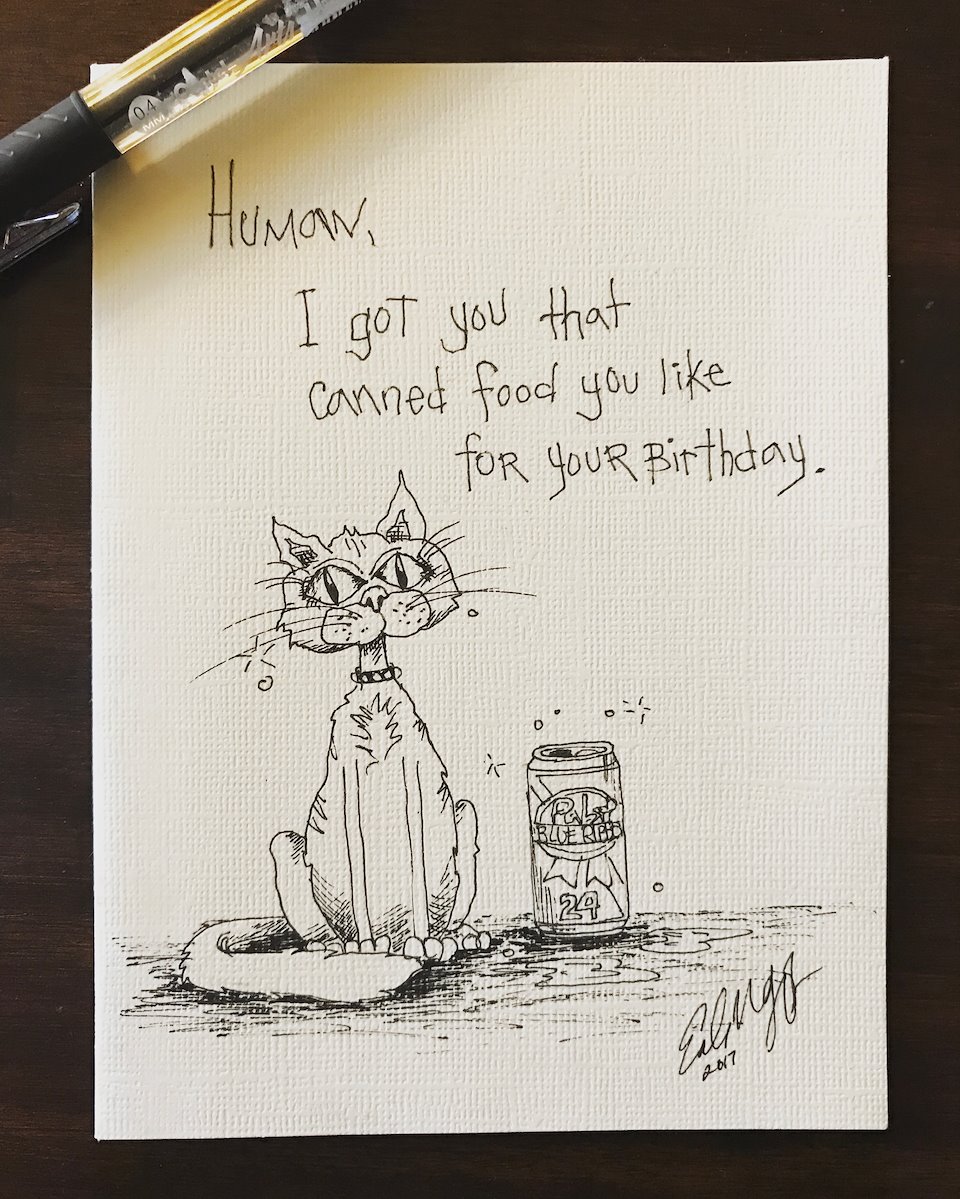 0.4
MM
Human,
I got you that
canned food you like
for your Birthday.
Pabst
BLUE RIBB
24
2017